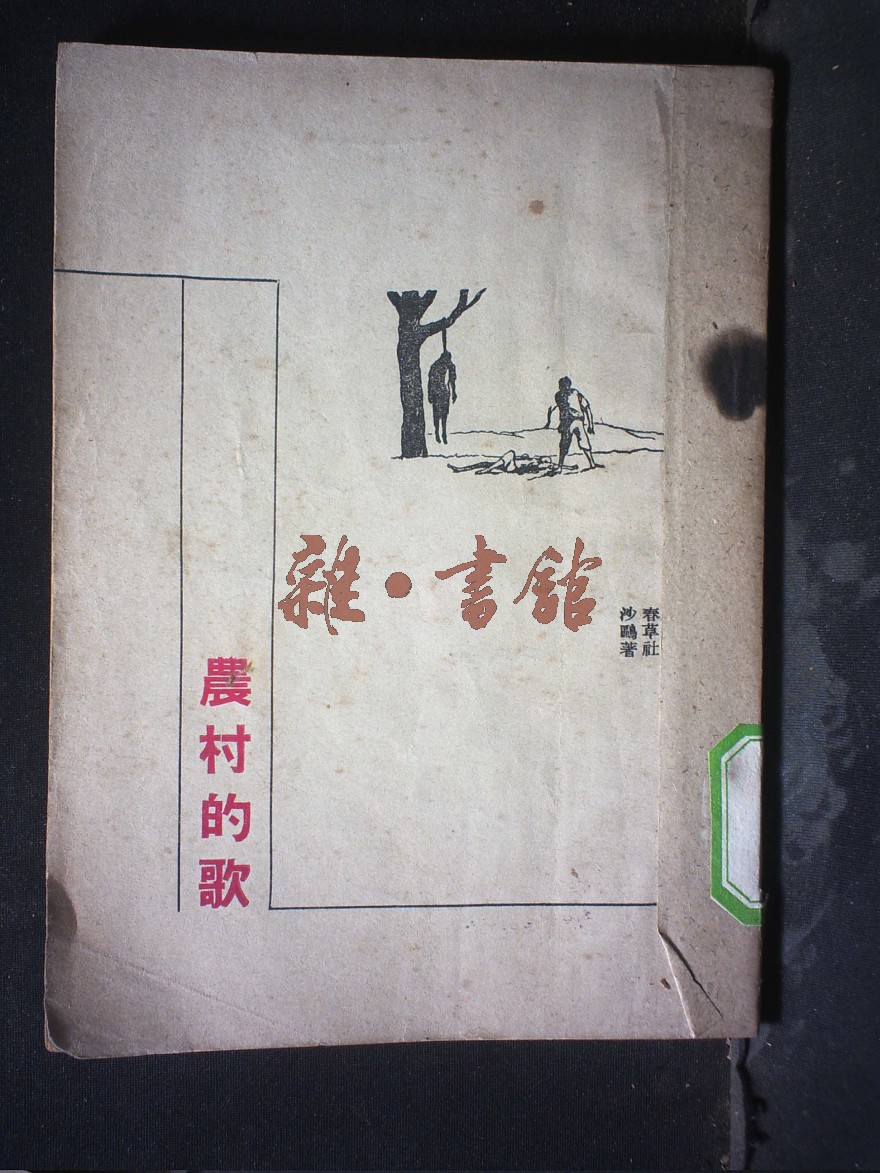 春草社
沙鷗著
農村的歌
雜•書館